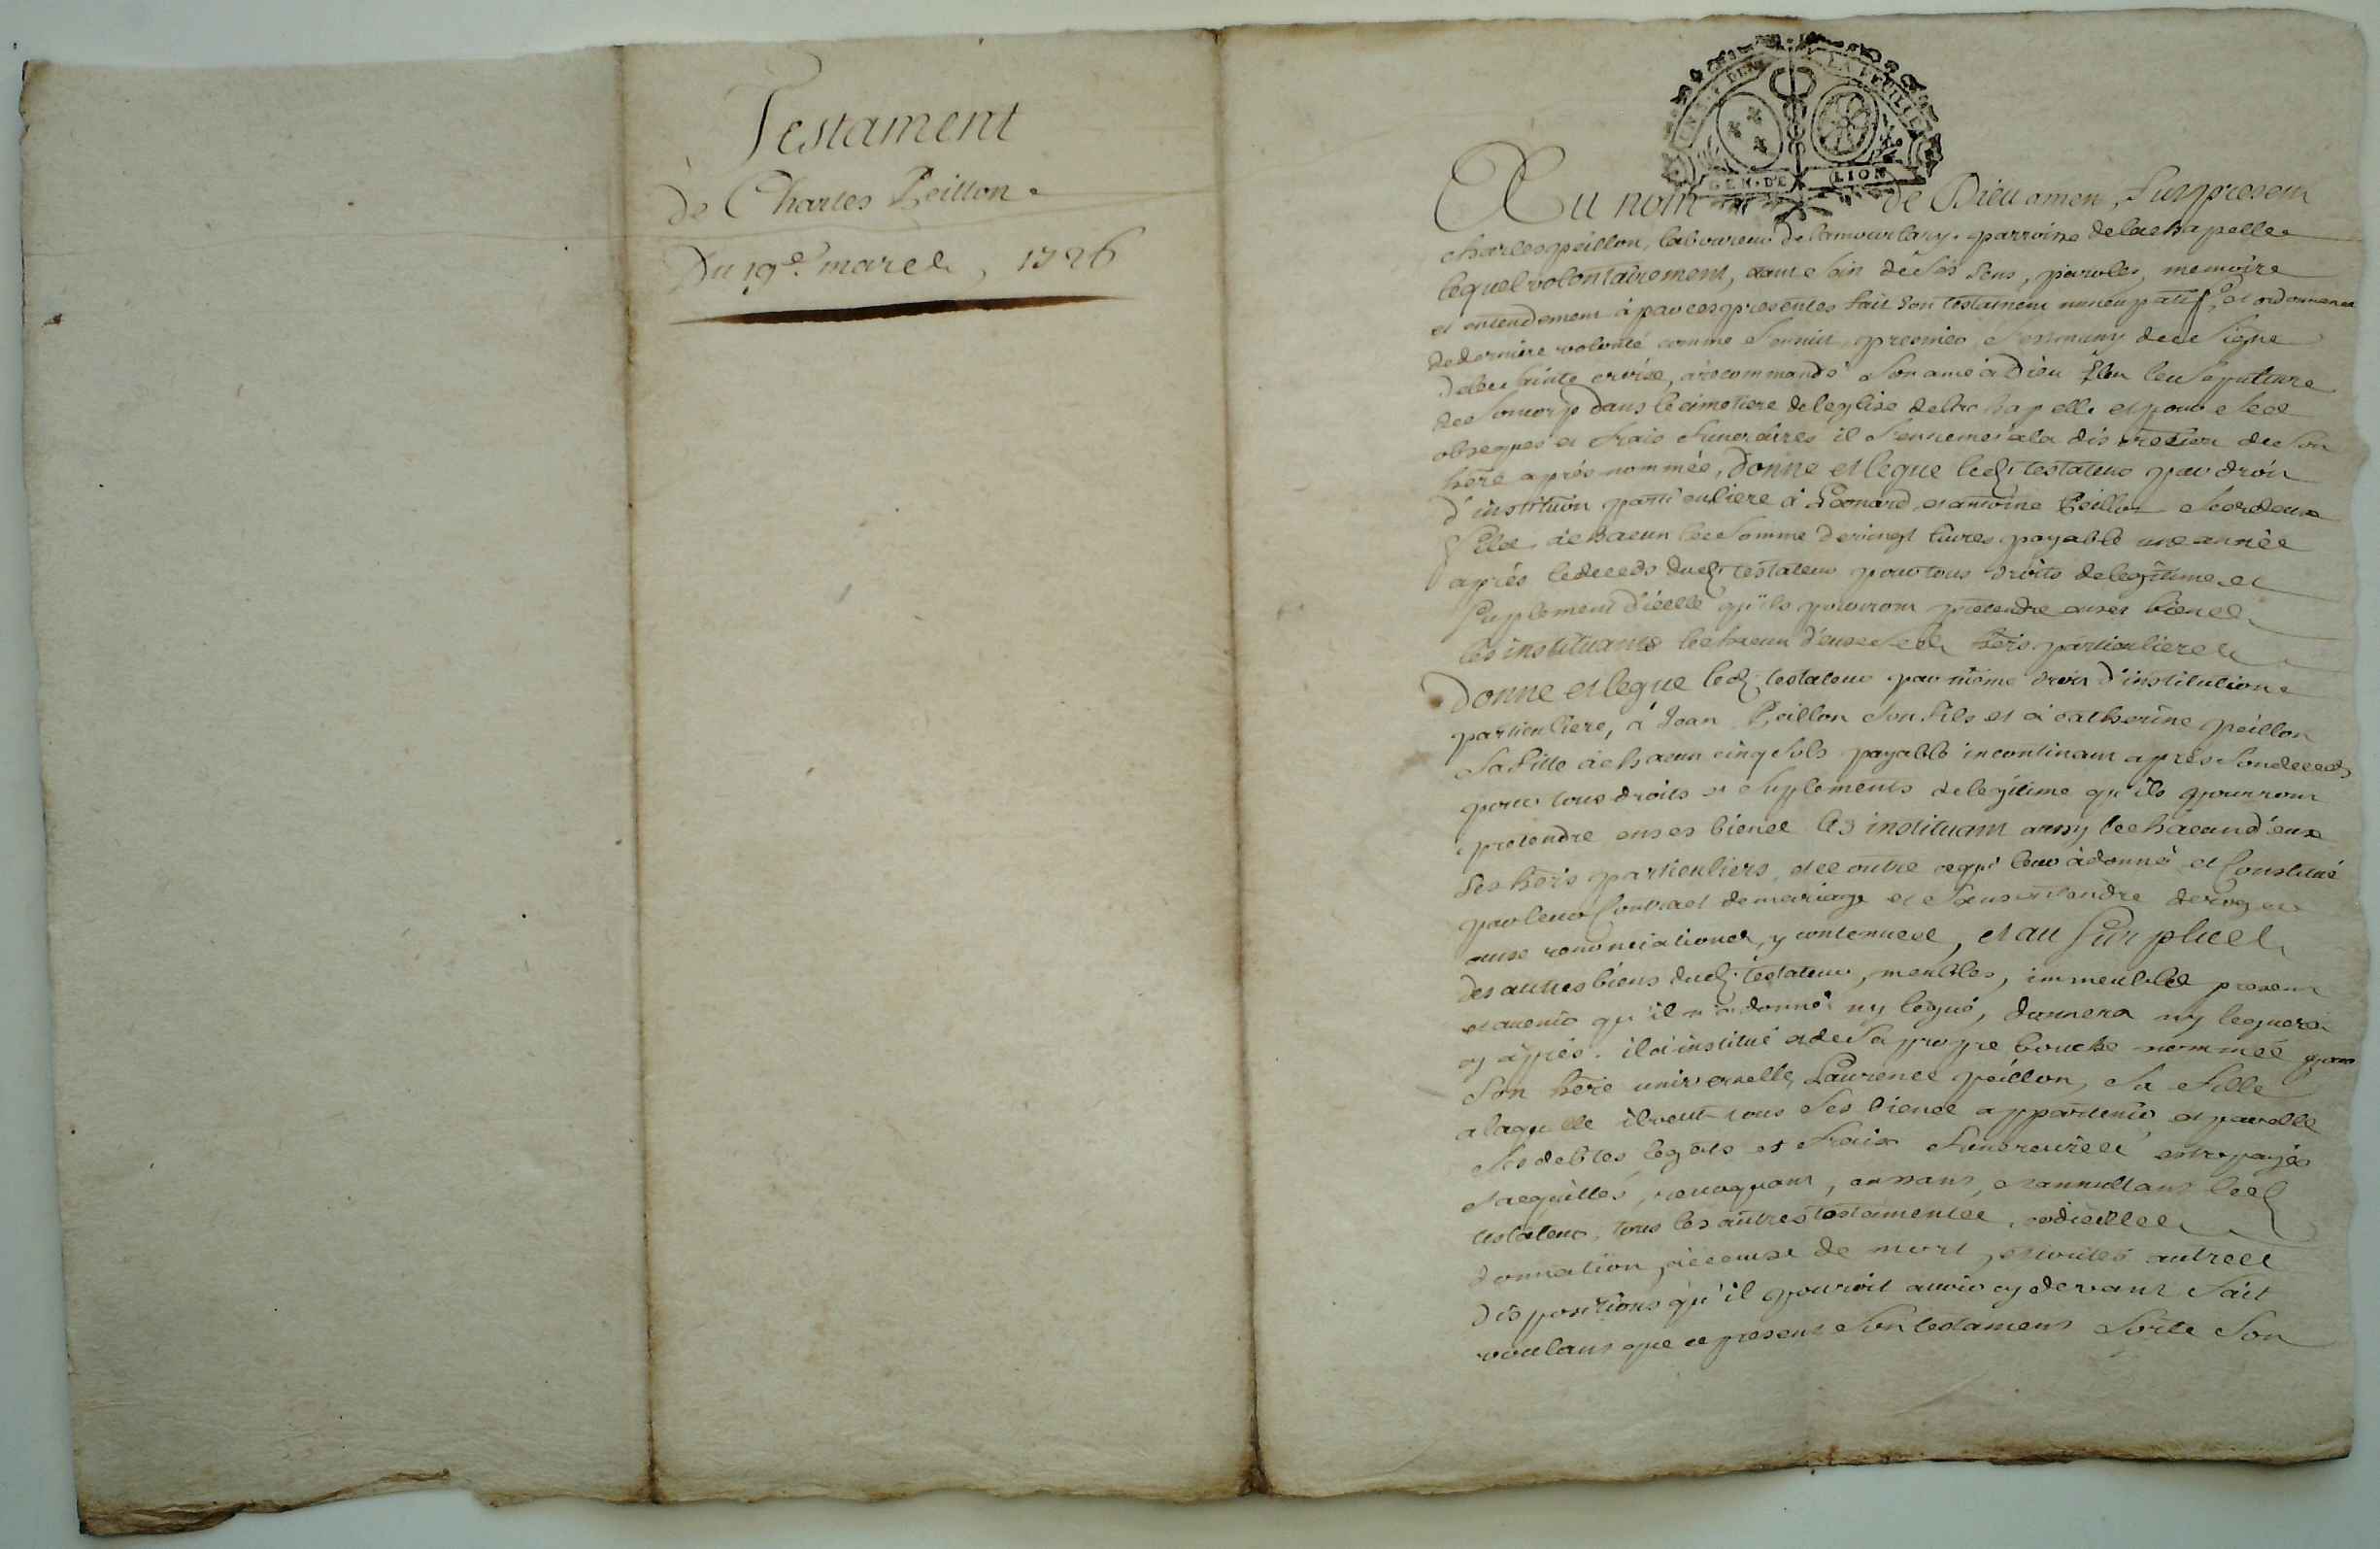 Testament
de Charles Peillon
Du 19e. march, 1726
LA FEUILLE
GEN. DE LION
Au nom de Dieu amen, fut present
charles peillon, laboureur de lamourlary. parroisse de la chapelle
lequel volontairement, sain de ses sens, parolles, memoire
et entendement à par ces presentes fait son testament nuncupatif, et ordonnance
de derniere volonté comme sensuit, premier du signe
de la sainte croix, à recommandé son ame à Dieu Elu la sepulture
de son corp dans le cimetiere de leglise de la chapelle et pour ses
obseques et frais funeraires il sen remet a la discretion de son
here après nommée, Donne et legue led. testateur par droit
d'institution particuliere à Leonard et antoine Peillon ses deux
fils, à chacun la somme de vingt livres payable une année
après le deceds dud. testateur pour tous droits de legitime et
suplement d'icelle qu'ils pourront pretendre en ses biens
les instituant chacun d'eux ses hers particuliers
Donne et legue led. testateur par même droit d'institution
particuliere, à Jean Peillon son fils et à catherine peillon
sa fille à chacun cinq sols payable incontinant après son deceds
pour tous droits et suplements de legitime qu'ils pourront
pretendre en ses biens les instituant aussy chacun d'eux
ses hers particuliers, et ce outre ce qui leur à donné et Constitué
par leur Contract de mariage et sans entendre deroger
aux renonciations, y contenues, et au surplus
des autres biens dud. testateur, meubles, immeubles present
et avenir qu'il n'a donné ny legué, donnera ny leguera
cy après. il a institué et de sa propre bouche nommée pour
son here universelle, Laurence peillon, sa fille
a laquelle il veut tous ses biens appartenir et par elle
ses debtes legats et fraix funeraires estre payés
et acquittés, revoquant, cassant, et annullant led.
testateur, tous les autres testaments, codicilles
donnation à cause de mort, et toutes autres
dispositions qu'il pouroit avoir cy devant fait
voulant que ce present son testament sorte son